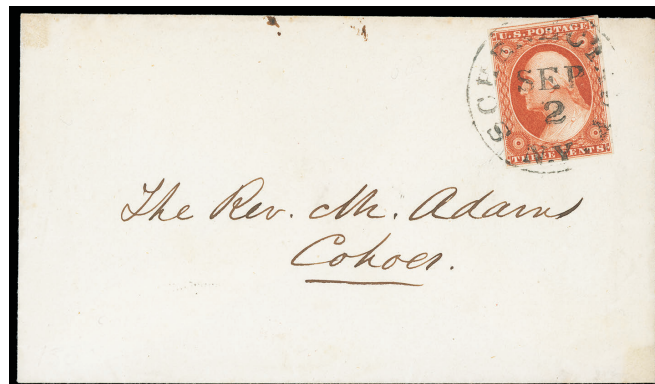 U.S. POSTAGE
SEP
2
N.Y.
THREE CENTS
The Rev. Mr. Adams
Cohoes.